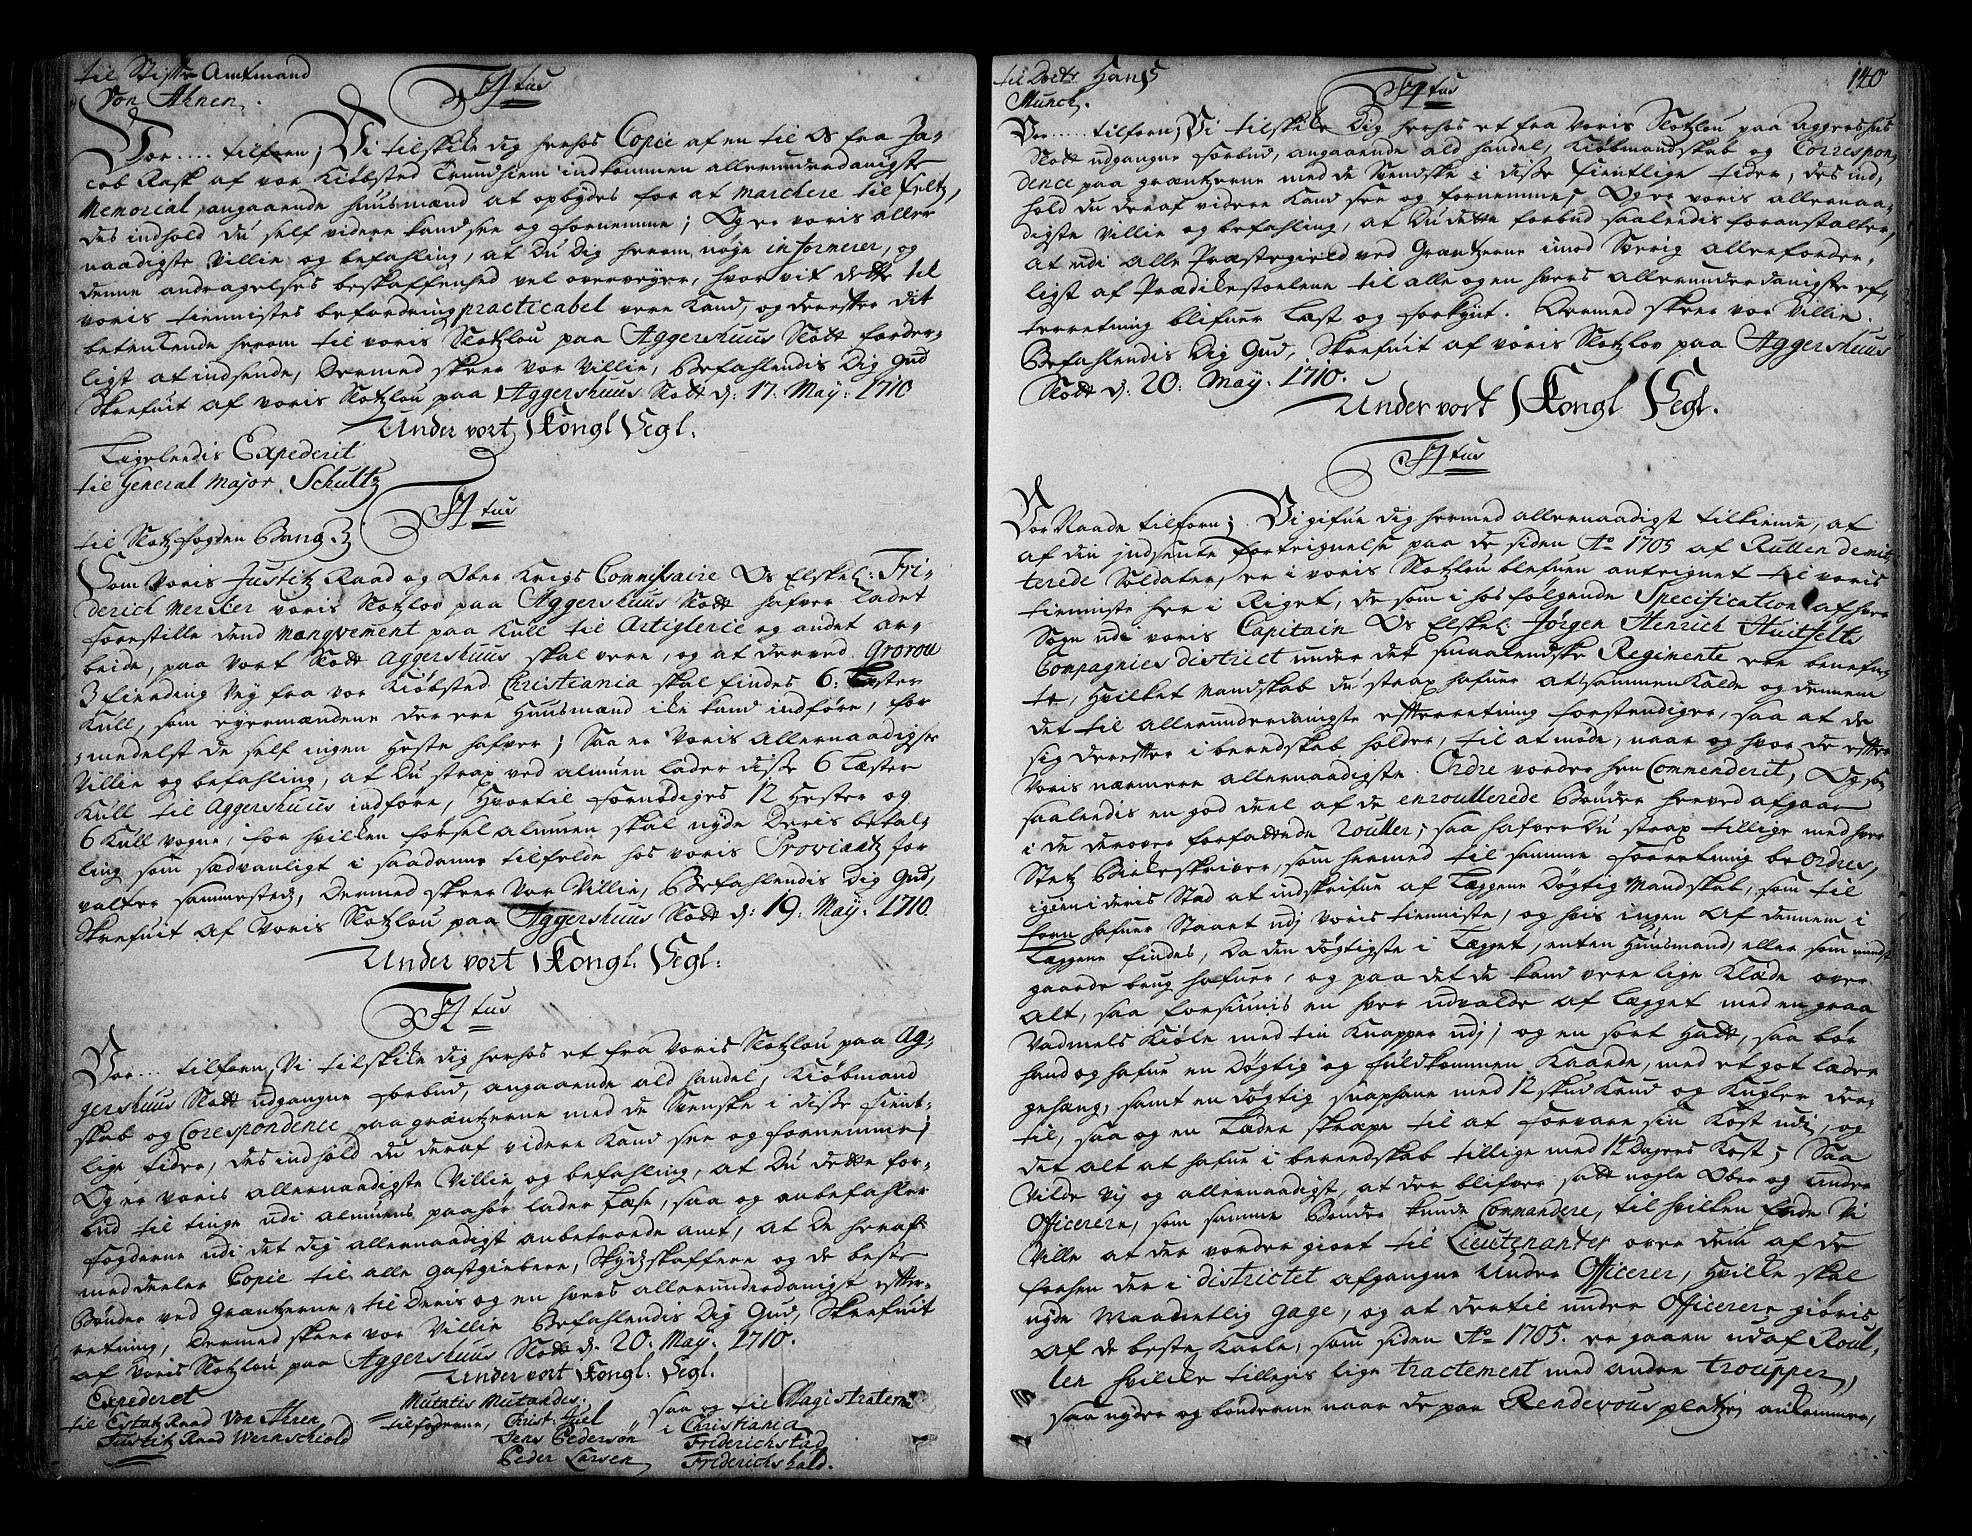 til Stifts Amtmand
Von Ahnen.
F4 tus
Vor.... tilforn; Vi tilskike dig herhos Copie af en til Os fra Ja-
cob Rask af vor Kiøbsted Trundhiem indkommen allerunderdanigste
Memorial, angaaende huusmænd at opbydes for at marchere til feltz,
des indhold du self videre kand see og fornemme; Og er voris aller
naadigste Villie og befahling, at Du Dig herom nøye informerer, og
denne andragelses beskaffenhed vel overveyer, hvorvit dette til
voris tiennistes befordring practicabel vere kand, og derefter dit
betenkende herom til voris Slotzlou paa Aggershuus Slott forder-
ligst at indsende, Dermed skeer vor Villie, Befahlendis Dig Gud
Skrefuit af voris Slotzlou paa Aggershuus Slott d: 17. May: 1710
Under vort Kongl Segl:
Ligelendis Expederit
til General Major Schultz
F4 tus
til Slotzfogden Bang
Som voris Justitz Raad og Ober Krigs Commissaire Os Elskel: Fri-
derich Mercker voris Slotzlov paa Aggershuus Slott hafver ladet
forestille dend manqvement paa Kull til Artiglerie og andet ar-
beide, paa vort Slott Aggershuus skal vere, og at derved Grorou
3 fierding vey fra vor Kiøbsted Christiania skal findes 6: Lester
Kull, som eyermændene der ere Huusmænd icke kand indføre, for
medelst de self ingen heste hafver; Saa er voris allernaadigste
Villie og befahling, at Du strax ved almuen lader disse 6 Læster
Kull til Aggershuus indføre, hvortil fornødiges 12 Hester og
6 Kull vogne, for hvilken førsel almuen skal nyde deris betal-
ling som sædvanligt i saadanne tilfelde hos voris Proviantz for
valter sammesteds, Dermed skeer vor Villie, Befahlendis Dig Gud,
Skrefuit af voris Slotzlou paa Aggershuus Slott d: 19. May: 1710.
Under vort Kongl. Segl:
F4 tus
Vor... tilforn, Vi tilskike dig herhos et fra voris Slotzlou paa Ag-
gershuus Slott udgangne forbud, angaaende ald handel, Kiøbmand
skab og Corespondence paa grentzerne med de Svenske i disse fient-
lige tider, des indhold du deraf videre kand see og fornemme;
Og er voris allernaadigste Villie og befahling, at Du dette for-
bud til tinge udi almuens paahør lader læse, saa og anbefahler
fogderne udi det dig allernaadigst anbetroede amt, at De heraf
meddeeler Copie til alle gastgiebere, Skydzskaffere og de beste
Bønder ved Grentzerne, til deris og en hvers allerunderdanigst efter-
retning, Dermed skeer vor Villie Befahlendis Dig Gud, Skrefuit
af voris Slotzlou paa Aggershuus Slott d. 20: May: 1710.
Under vort Kongl: Segl.
Expederet
til Estatz Raad Von Ahnen
Justitz Raad Wernschiold
Mutatis Mutandis
til fogderne, Christ: Juel
Jens Pederson
Peder Larsen
saa og til Magistraterne
i Christiania
Friderichstad
Friderichshald.
140
til Doctr Hans
Munch.
F4 tus
Vor.... tilforn; Vi tilskike Dig herhos et fra voris Slotzlou paa Aggershuus
Slott udgangne forbud, angaaende ald handel, Kiøbmandskab og Correspon
dence paa grentzerne med de Svendske i disse fientlige tider, des ind,
hold du deraf videre kand see og fornemme; Og er voris allernaa-
digste Villie og befahling, at Du dette forbud saaledis foranstalter,
at udi alle Præstegield ved Grentzerne imod Sverig allerforder-
ligst af Prædikestoelene til alle og en hvers allerunderdanigste ef-
terretning blifuer læst og forkynt. Dermed skeer vor Villie.
Befahlendis Dig Gud, Skrefuit af voris Slotzlov paa Aggershuus
Slott d: 20: May. 1710.
Under vort Kongl Segl.
F4 tus
Vor Naade tilforn; Vi gifue dig hermed allernaadigst tilkiende, af
af din indsente fortegnelse paa de siden Ao 1705 af Rullen demit
terede Soldater, er i voris Slotzlou blefuen antegnet til voris
tienniste her i Riget, de som i hosfølgende Specification af hver
Sogn udi voris Capitain Os Elskel: Jørgen Henrich Huitfelts
Compagnies district under det smaalendske Regimente ere benefn
te, Hvilket mandskab du strax hafuer at sammenkalde og dennem
det til allerunderdanigste efterretning forstendiger, saa at de
sig derefter i beredskab holder, til at møde, naar og hvor de efter
voris nærmere allernaadigste Ordre vorder hen Commenderit, Og som
saaledis en god deel af de enroullerede Bønder herved afgaar
i de derover forfattede Roller; saa hafver Du strax tillige med hver
Stetz Bielkeskriver, som hermed til samme forretning beordres,
igien i deris Sted at indskrifue af Læggene Døgtig Mandskab, som til
forn hafuer Staaet udj voris tienniste, og hvis ingen af dennem i
Læggene findes, Da den døgtigste i Legget, enten Huusmænd, eller som mindst
gaarde brug hafuer, og paa det de kand vere lige Klæde over
alt, saa forsiunis en hver udvalde af Legget med en graa
Vadmels Kiole med tin Knapper udj, og en sort Hatt, saa bør
hand og hafue en Døgtig og fuldkommen Kaarde, med et got læder
gehæng, samt en døgtig snaphane med 12 skud Krud og Kugler der-
til, saa og en Læder skræpe til at forvare sin Kost udi, og
det alt at hafue i beredskab tillige med 14 Dagers Kost; Saa
Vilde Vj og allernaadigst, at der blifver satt nogle Ober og under
Officerer, som samme Bønder kunde Commandere, til hvilken Ende Vi
Ville at der vorder giort til Lieutenanter over dem af de
forhen der i districtet afgangne Under Officerer, Hvilke skal
nyde Maanetlig gage, og at dertil under Officerer giøris
af de beste Karle, som siden Ao 1705. er gaaen ud af Roul-
len hvilke tilleigis lige tractement med andre troupper,
saa nyder og bønderne naar de paa Rendevous platzen ankommer,